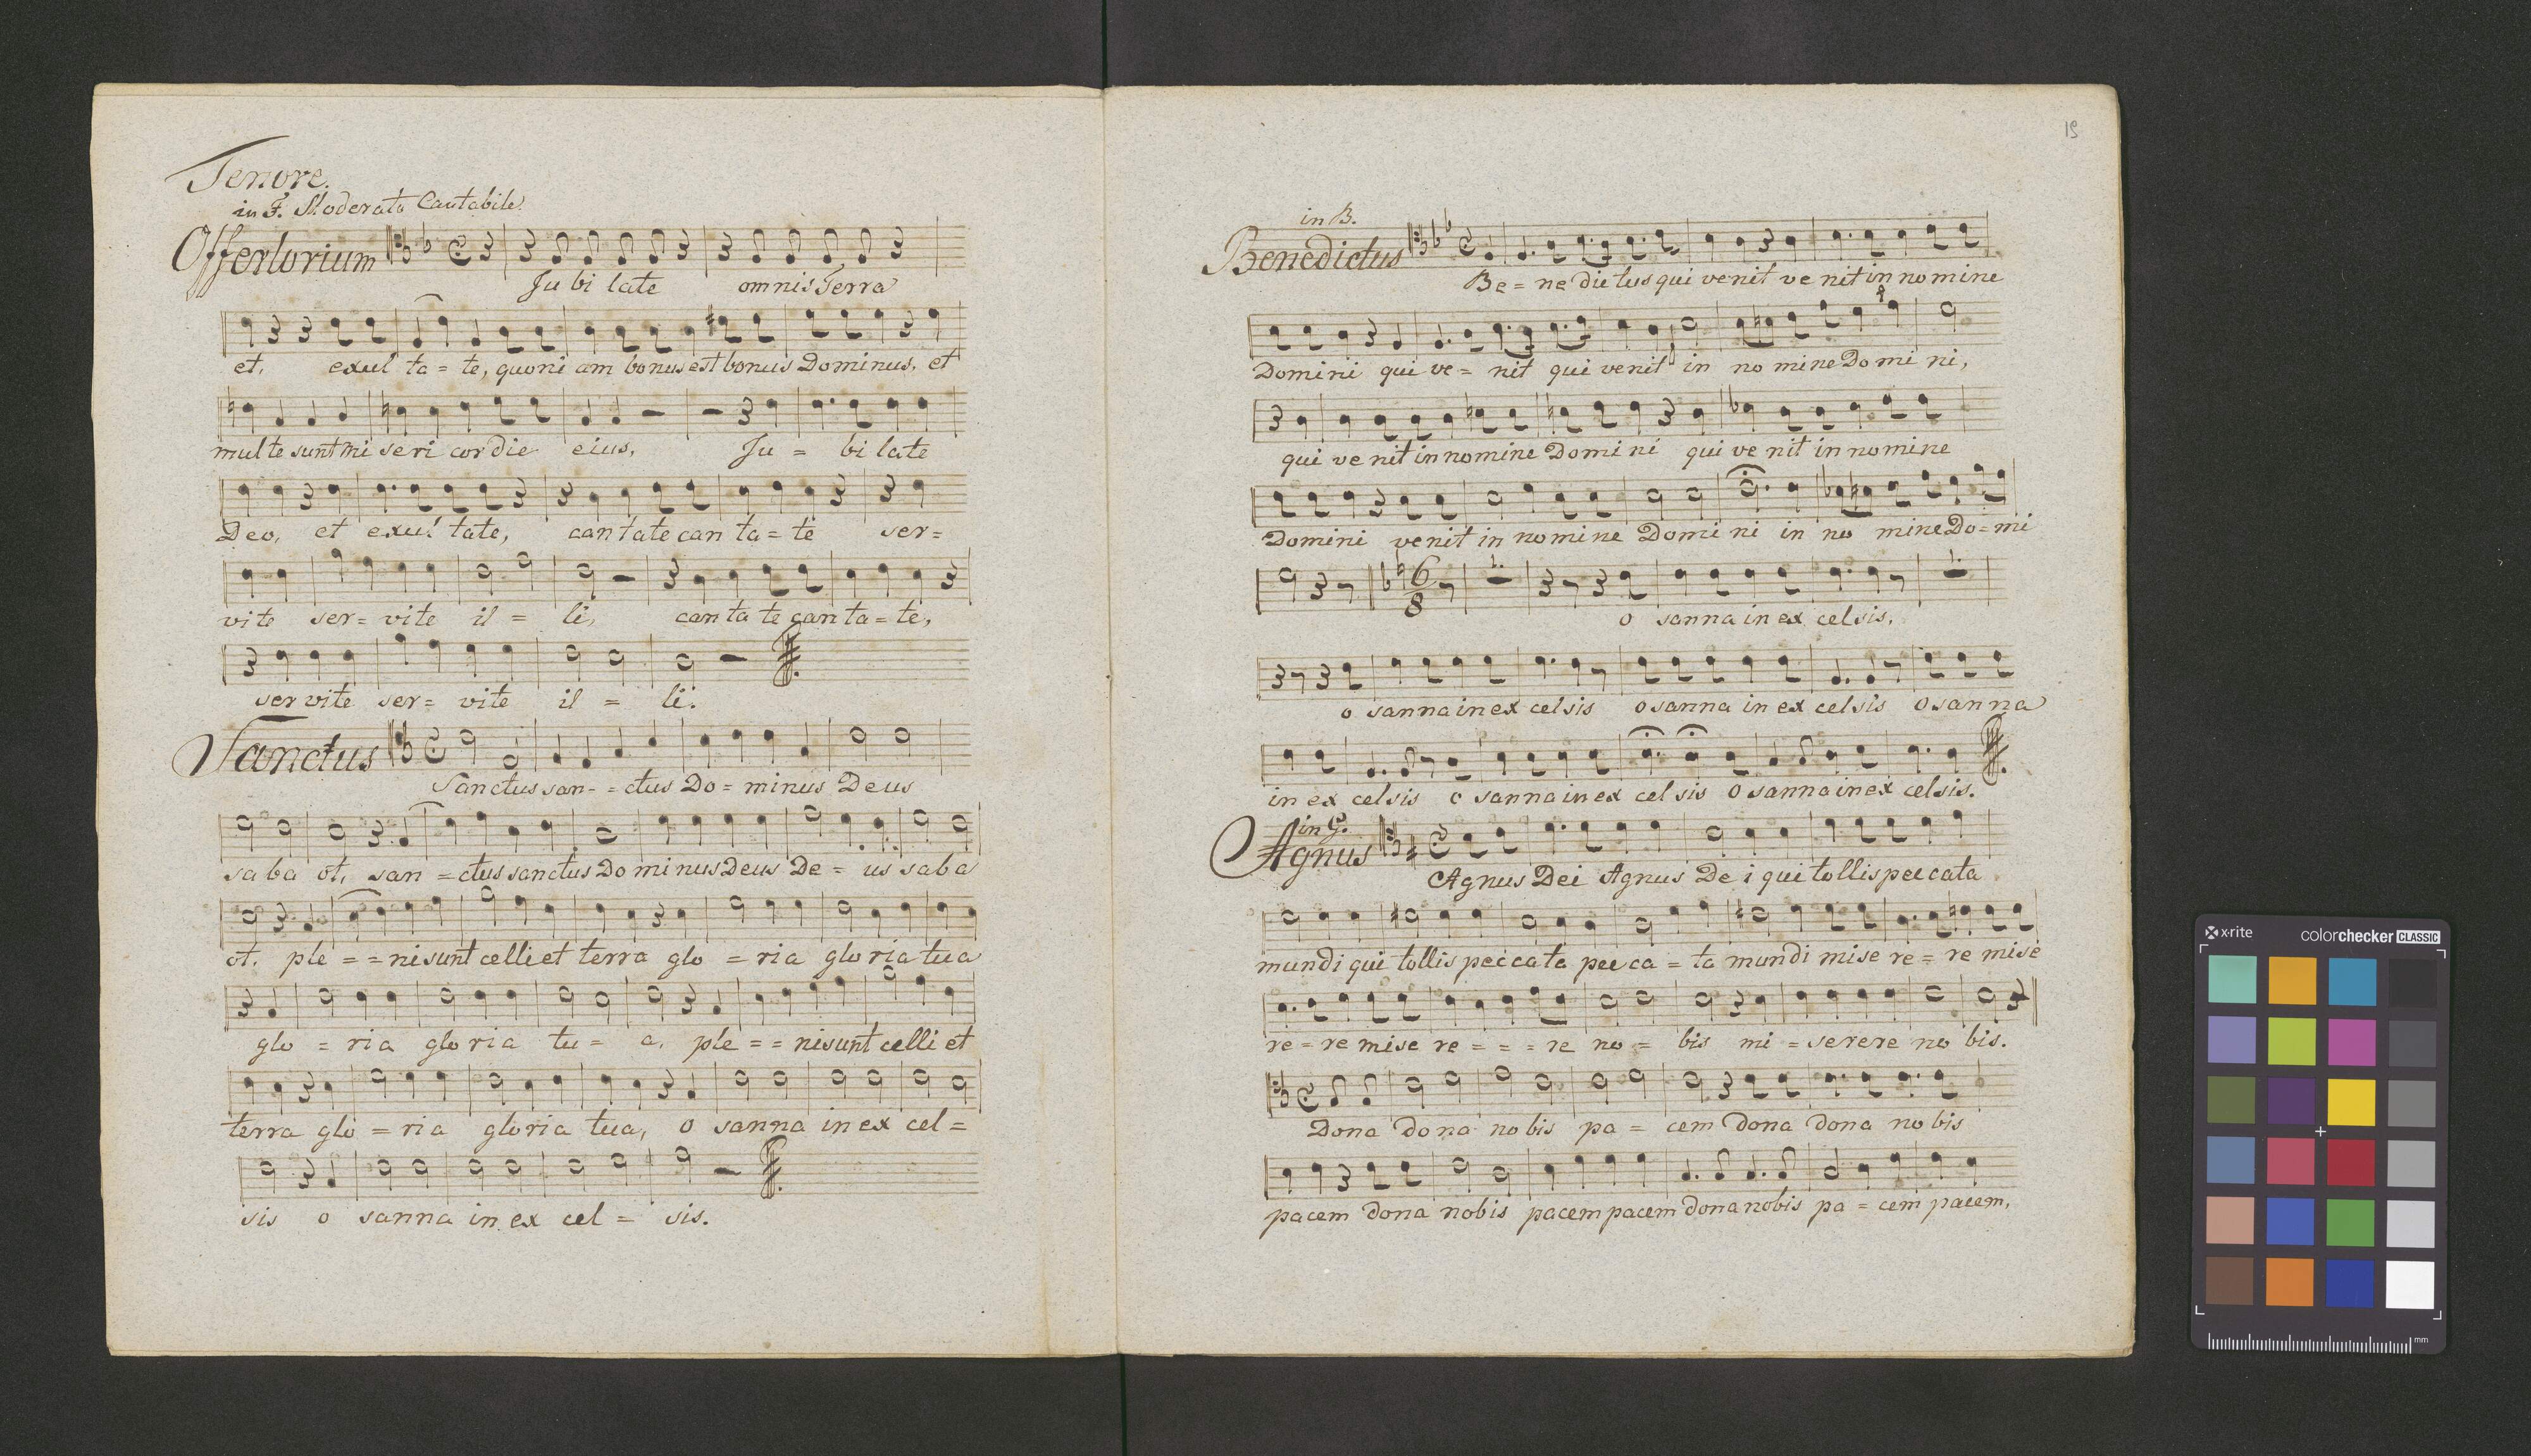 Tenore.
in F. Moderato Cantabile.
Offertorium
Ju bi late omnis Terra
et, exul ta = te, quoni am bonus est bonus Dominus, et
multe sunt mi seri cordie eius, Ju = bi late
Deo, et exul tate, cantate can ta = te ser=
vite ser= vite il = li, can ta te can ta = te,
ser vite ser= vite il = li.
Sanctus
Sanctus san- = ctus Do = minus Deus
sa ba ot, san = ctus sanctus Do minus Deus De = us saba
ot. ple = = ni sunt celli et terra glo = ria gloria tua
glo = ria gloria tu = a, ple = = ni sunt celli et
terra glo = ria gloria tua, o sanna in ex cel =
sis o sanna in ex cel = sis.
19
in B.
Benedictus
Be = ne dictus qui venit ve nit in nomine
Domini qui ve = nit qui venit in no mine Do mi ni,
qui ve nit in nomine Domi ni qui ve nit in nomine
Domini venit in nomine Domi ni in no mine Do = mi
6
8
o sanna in ex celsis,
o sanna in ex celsis o sanna in ex celsis o sanna
in ex celsis o sanna in ex cel sis o sanna in ex celsis.
in G.
Agnus
Agnus Dei Agnus De i qui tollis peccata
mundi qui tollis peccata pecca = ta mundi mise re = re mise
re = re mise re = = = re no = bis mi = serere no bis.
Dona dona nobis pa = cem dona dona nobis
pacem dona nobis pacem pacem dona nobis pa = cem pacem,
x·rite
colorchecker CLASSIC
mm